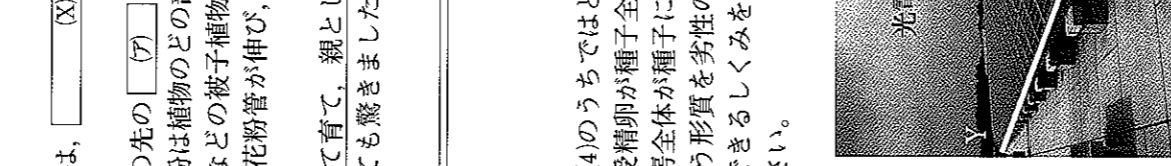 は， (X)
の先の (ア)
分は植物のどの
などの被子植物
花粉管が伸び，
て育て，親とし
ても驚きました
4)のうちではど
受精卵が種子全
房全体が種子に
う形質を劣性の
できるしくみを
さい。
光
Y